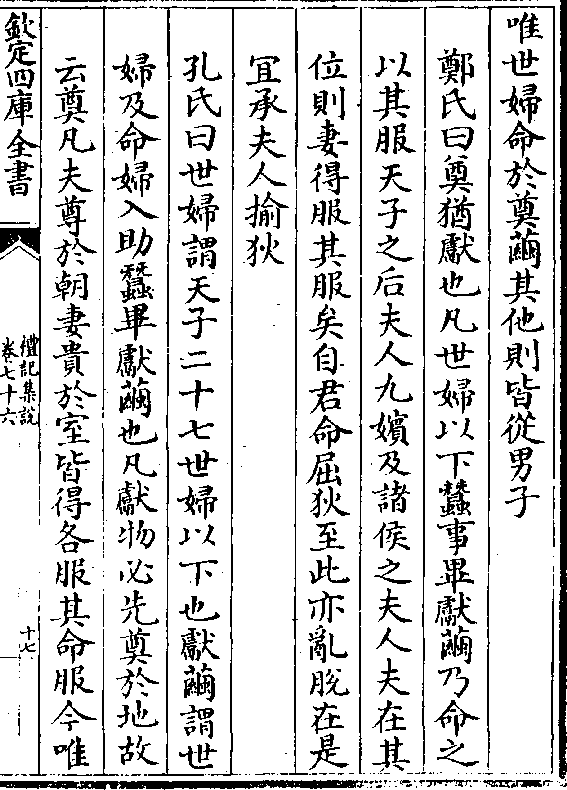 唯世婦命於奠繭其他則皆從男子
鄭氏曰奠猶獻也凡世婦以下蠶事畢獻繭乃命之
以其服天子之后夫人九嬪及諸侯之夫人夫在其
位則妻得服其服矣自君命屈狄至此亦亂脫在是
宜承夫人揄狄
孔氏曰世婦謂天子二十七世婦以下也獻繭謂世
婦及命婦入助蠶畢獻繭也凡獻物必先奠於地故
云奠凡夫尊於朝妻貴於室皆得各服其命服今唯
欽定四庫全書
禮記集說
卷七十六
十七